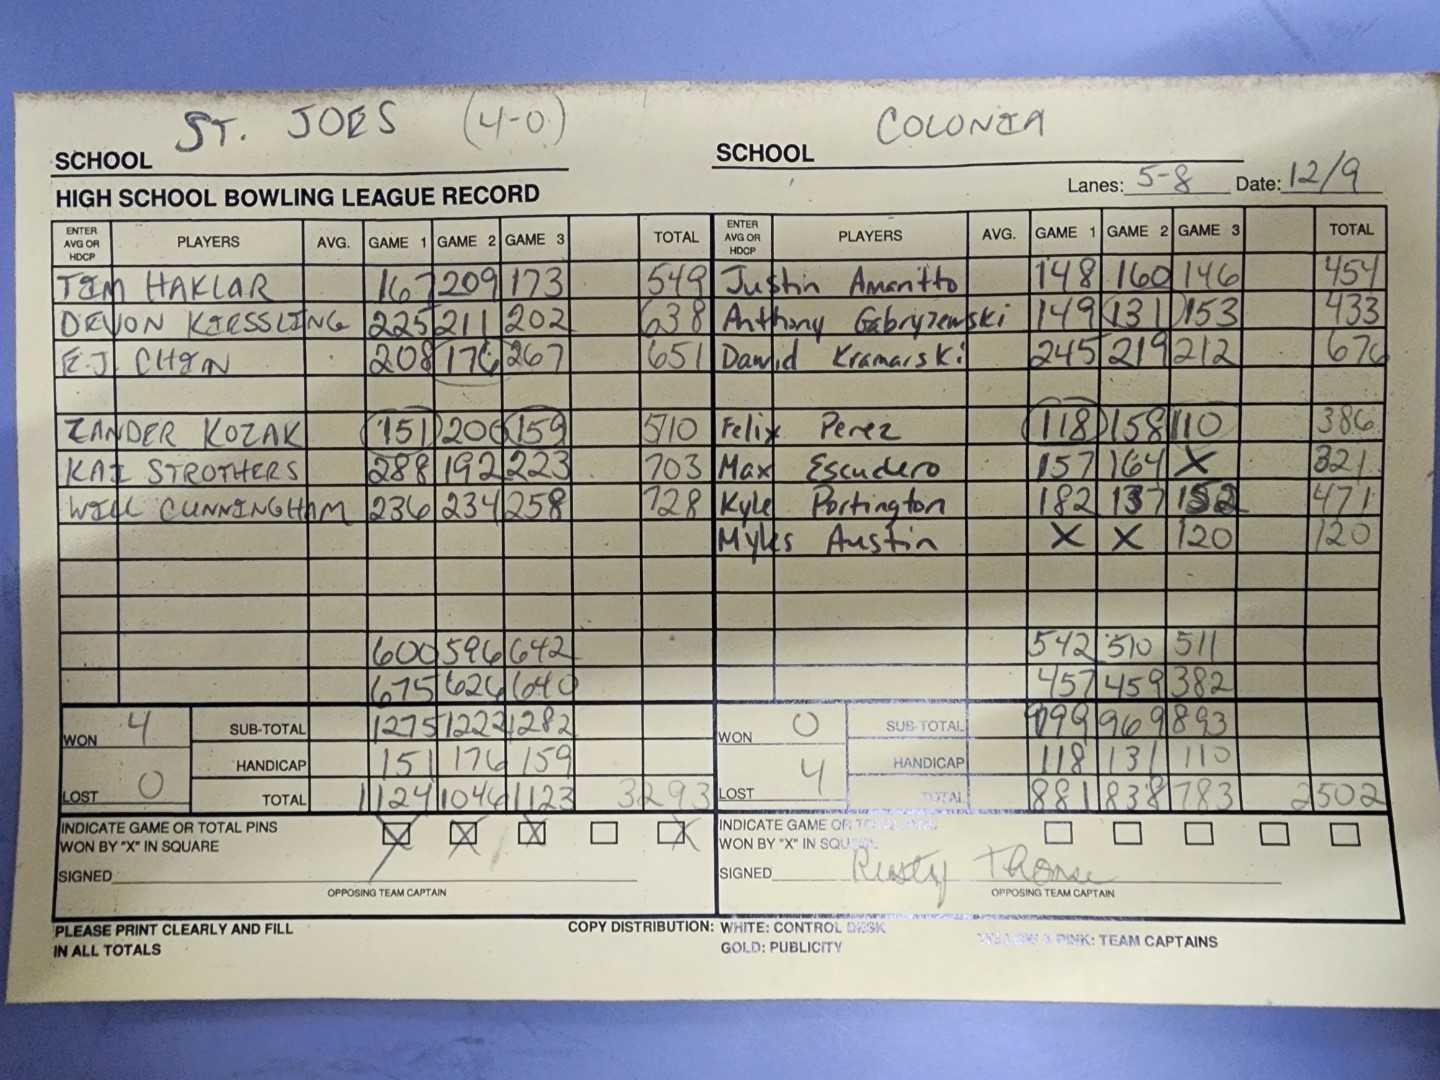 ST. JOES (4-0) COLONIA
SCHOOL SCHOOL
HIGH SCHOOL BOWLING LEAGUE RECORD Lanes: 5-8 Date: 12/9
ENTER AVG OR HDCP PLAYERS AVG. GAME 1 GAME 2 GAME 3 TOTAL ENTER AVG OR HDCP PLAYERS AVG. GAME 1 GAME 2 GAME 3 TOTAL
TIM HAKLAR 167 209 173 549 Justin Amaritto 148 160 146 454
DEVON KIESSLING 225 211 202 638 Anthony Gabryzewski 149 131 153 433
E.J. CHIN 208 176 267 651 Dawid Kramarski 245 219 212 676
ZANDER KOZAK 151 200 159 510 Felix Perez 118 158 110 386
KAI STROTHERS 288 192 223 703 Max Escudero 157 164 X 321
WILL CUNNINGHAM 236 234 258 728 Kyle Portington 182 137 152 471
Myles Austin X X 120 120
600 596 642 542 510 511
675 626 640 457 459 382
WON 4 SUB-TOTAL 1275 1222 1282 WON 0 SUB-TOTAL 999 969 893
HANDICAP 151 176 159 HANDICAP 118 131 110
LOST 0 TOTAL 1124 1046 1123 3293 LOST 4 TOTAL 881 838 783 2502
INDICATE GAME OR TOTAL PINS X X X X INDICATE GAME OR TOTAL PINS
WON BY "X" IN SQUARE WON BY "X" IN SQUARE
SIGNED SIGNED Rusty Thorne
OPPOSING TEAM CAPTAIN OPPOSING TEAM CAPTAIN
PLEASE PRINT CLEARLY AND FILL COPY DISTRIBUTION: WHITE: CONTROL DESK YELLOW & PINK: TEAM CAPTAINS
IN ALL TOTALS GOLD: PUBLICITY